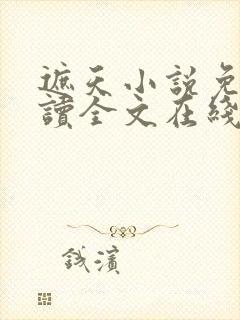 遮天小說免
讀全文在綫
錢濱